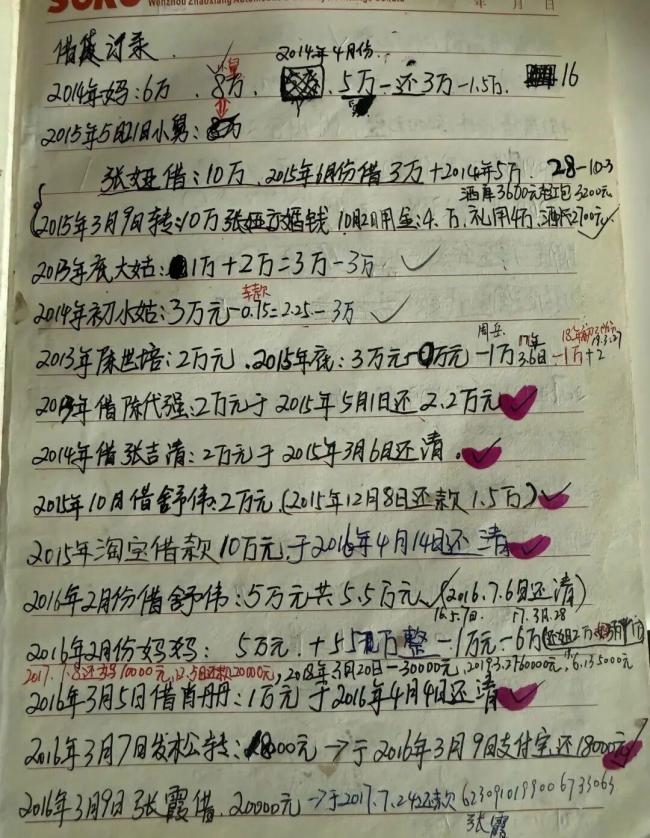 年 月 日
借贷记录
2014年4月份
2014年妈:6万 8万 5万-还3万-1.5万 16
2015年5月21日小舅:
张娅借:10万 2015年6月份借3万+2014年5万 28-10-3
酒席3600元 红包3200元
2015年3月9日转:10万张娅 婚钱 10月2日用金:4万 礼用4万 2700元
2013年底大姑:1万+2万=3万-3万
车款
2014年初小姑:3万元-0.75=2.25-3万
周岳
2013年陈世培:2万元、2015年底:3万元 万元-1万 3.6日 -1万+2
2013年借陈代强:2万元于2015年5月1日还2.2万元
2014年借张吉清:2万元于2015年3月6日还清
2015年10月借舒伟:2万元(2015年12月8日还款1.5万)
2015年淘宝借款10万元于2016年4月14日还清
2016年2月份借舒伟:5万元共5.5万元(2016.7.6日还清)
16.5.7日 17.3月.28
2016年2月份妈妈: 5万元 +5 万整-1万元-6万
2017.7.8还妈10000元, 5日还款20000元, 2018年3月20日-30000元, 6.13 5000元
2016年3月5日借肖丹丹:1万元于2016年4月4日还清
2016年3月7日 转:18000元→于2016年3月9日支付宝还18000元
2016年3月9日张霞借 20000元→于2017.7.24还款
张霞